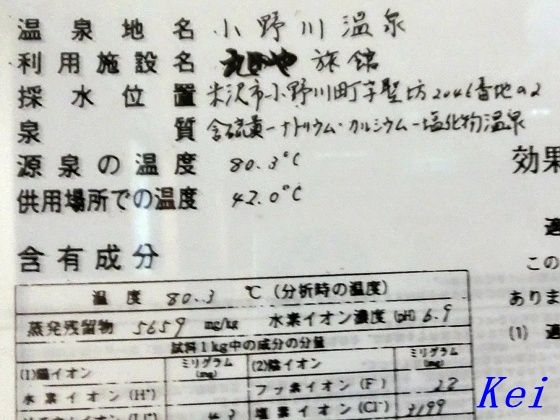 温泉地名 小野川温泉
利用施設名 旅館
採水位置 米沢市小野川町字聖坊2046番地の2
泉質 含硫黄ーナトリウム・カルシウムー塩化物温泉
源泉の温度 80.3℃
供用場所での温度 42.0℃
効果
含有成分
この
ありま
(1)
温度 80.3 ℃ (分析時の温度)
蒸発残留物 5659 mg/kg 水素イオン濃度(pH) 6.9
試料1kg中の成分の分量
(1)陽イオン ミリグラム(mg) (2)陰イオン ミリグラム(mg)
水素イオン(H⁺) フッ素イオン(F⁻)
塩素イオン(Cl⁻) 3199
Kei